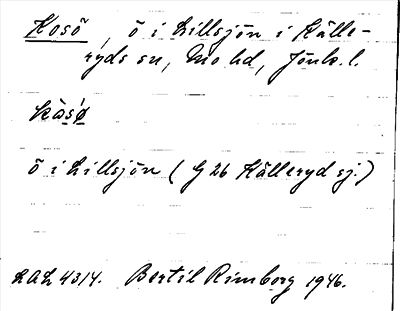 Kosö, ö i Lillsjön i Källe-
ryds sn, Mo hd, Jönk. l.
kås̀ø
ö i Lillsjön (G 26 Källeryd sj.)
LAL 4314. Bertil Rimborg 1946.